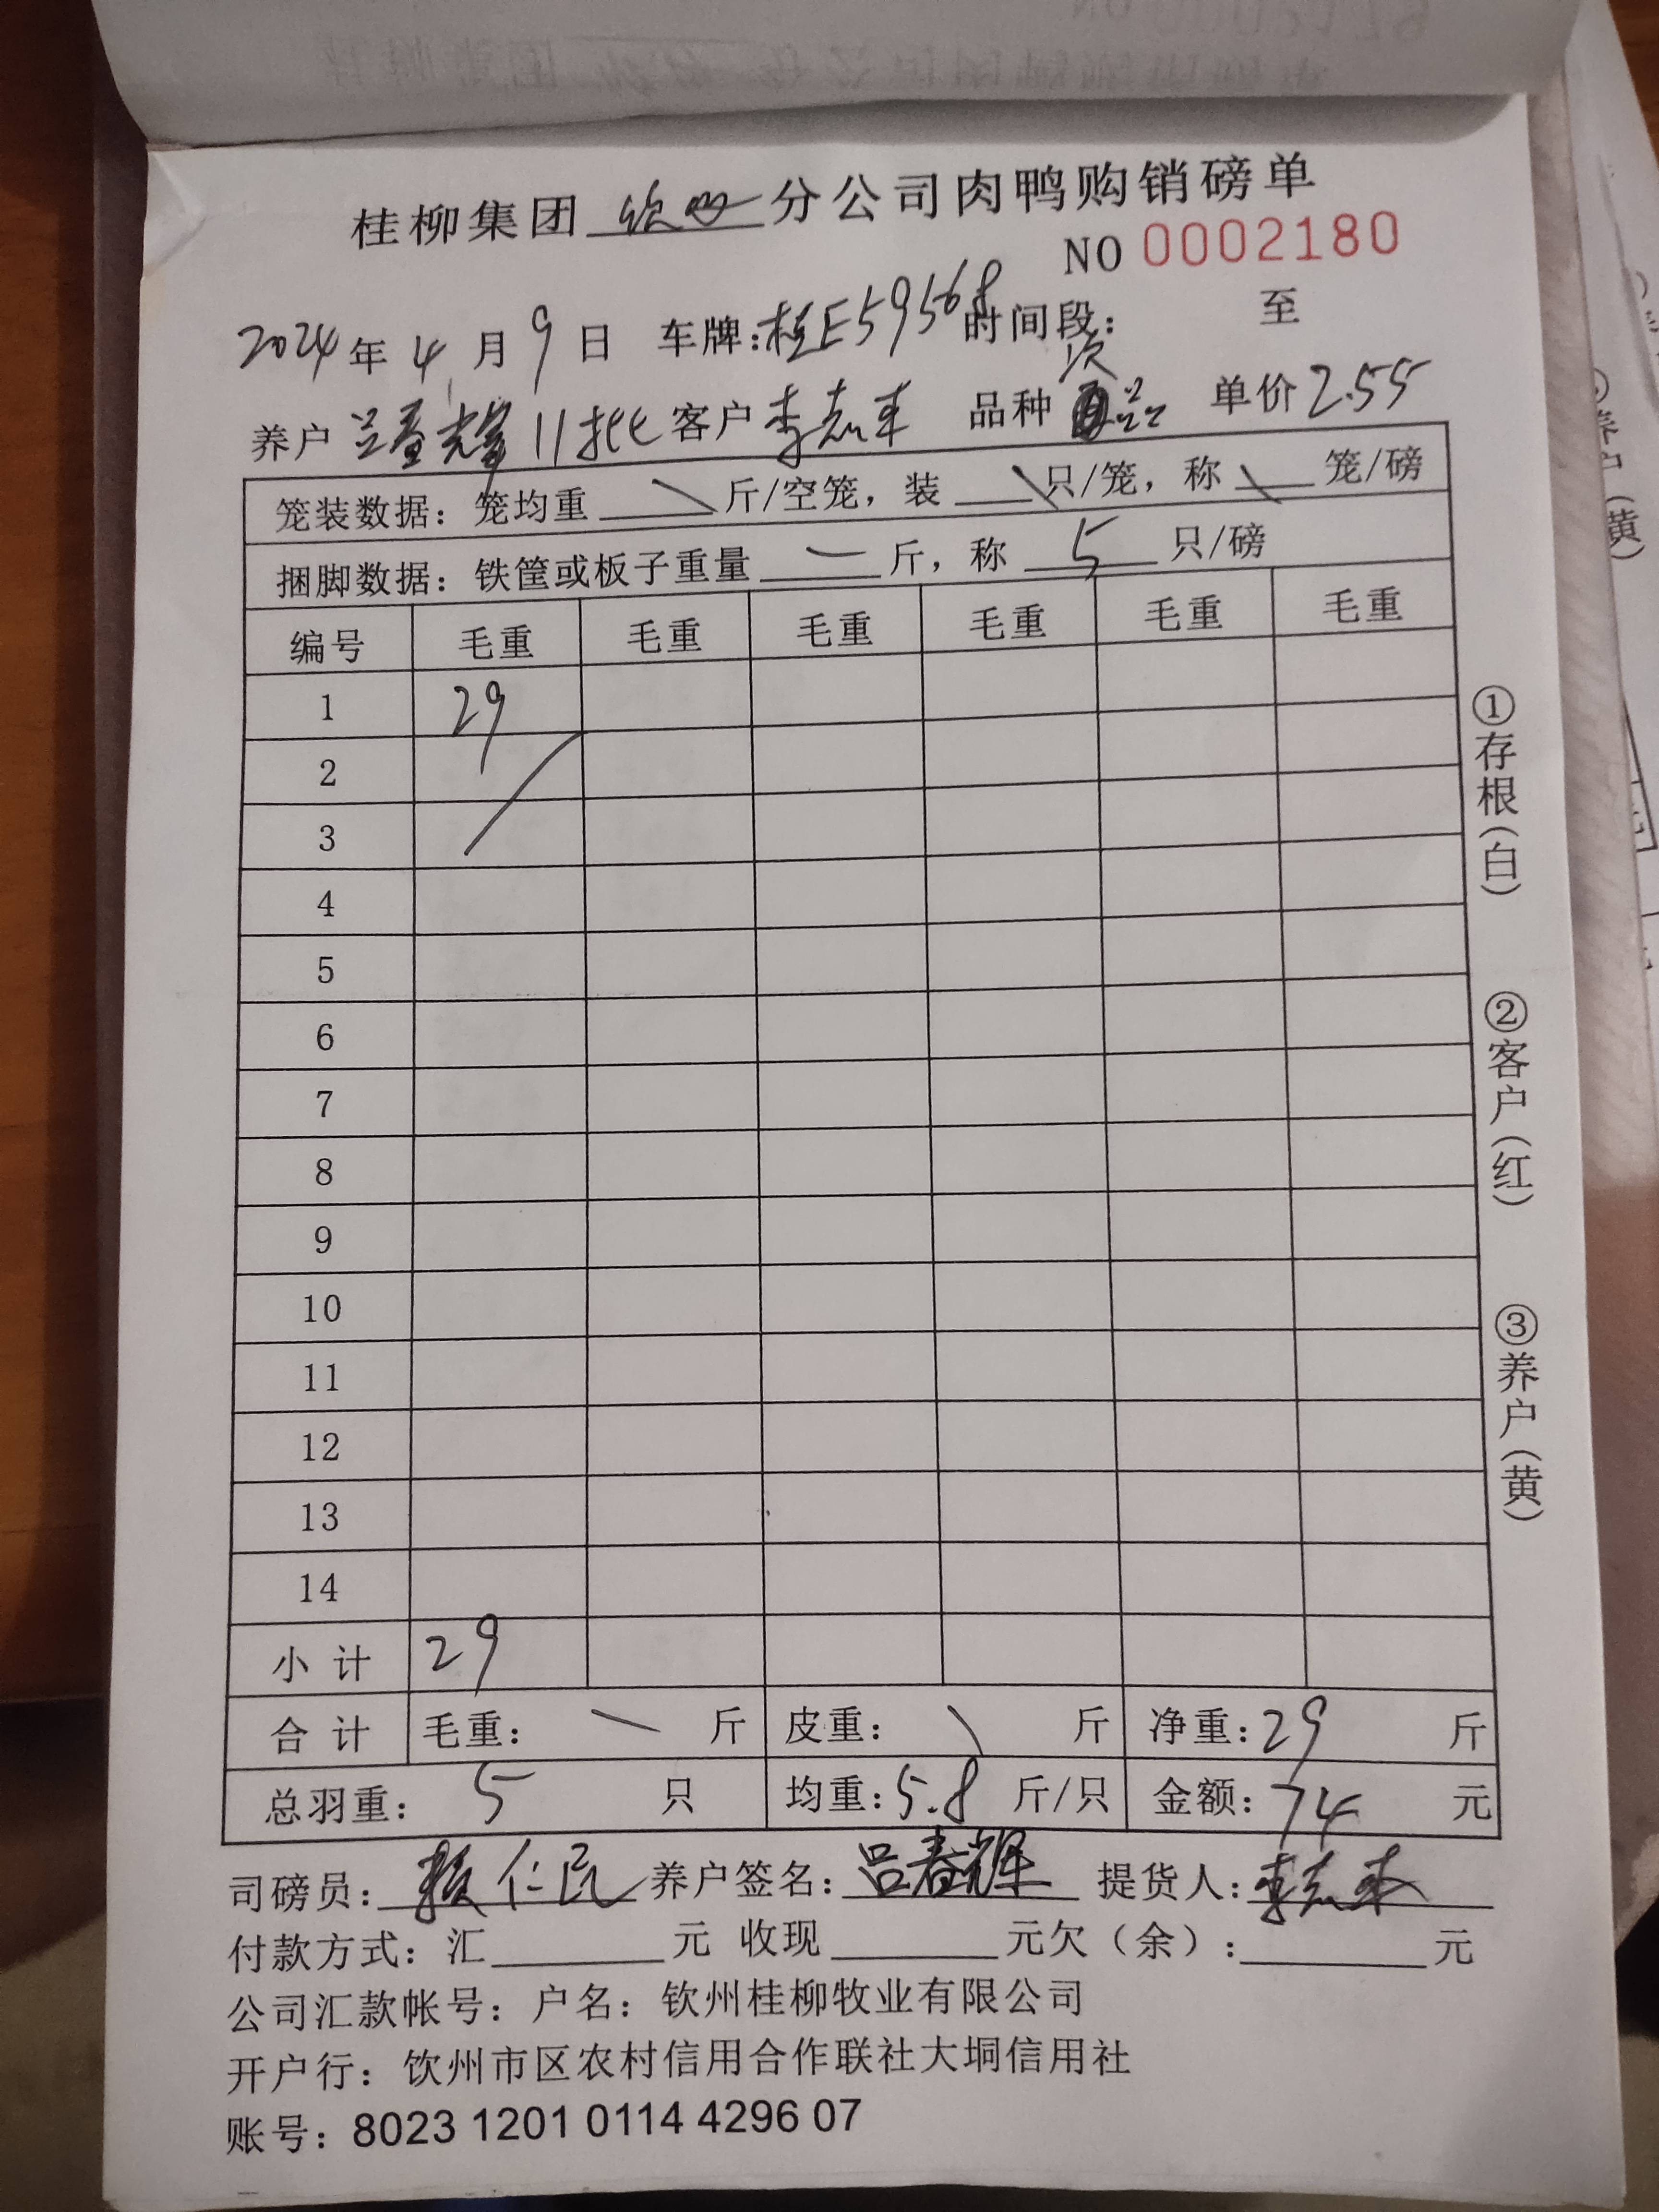 桂柳集团 钦州 分公司肉鸭购销磅单
NO 0002180
2024年 4 月 9 日 车牌:桂E59568 时间段: 至
养户 11批 客户 李志 品种 次品 单价 2.55
笼装数据：笼均重 \ 斤/空笼，装 \ 只/笼，称 \ 笼/磅
捆脚数据：铁筐或板子重量 一 斤，称 5 只/磅
编号 毛重 毛重 毛重 毛重 毛重 毛重
1 29
2
3
4
5
6
7
8
9
10
11
12
13
14
小 计 29
合 计 毛重： \ 斤 皮重： \ 斤 净重：29 斤
总羽重： 5 只 均重：5.8 斤/只 金额：74 元
司磅员： 赖仁民 养户签名：吕春辉 提货人：李志
付款方式：汇 元 收现 元欠（余）： 元
公司汇款帐号：户名：钦州桂柳牧业有限公司
开户行：饮州市区农村信用合作联社大垌信用社
账号：8023 1201 0114 4296 07
①存根(白)
②客户(红)
③养户(黄)